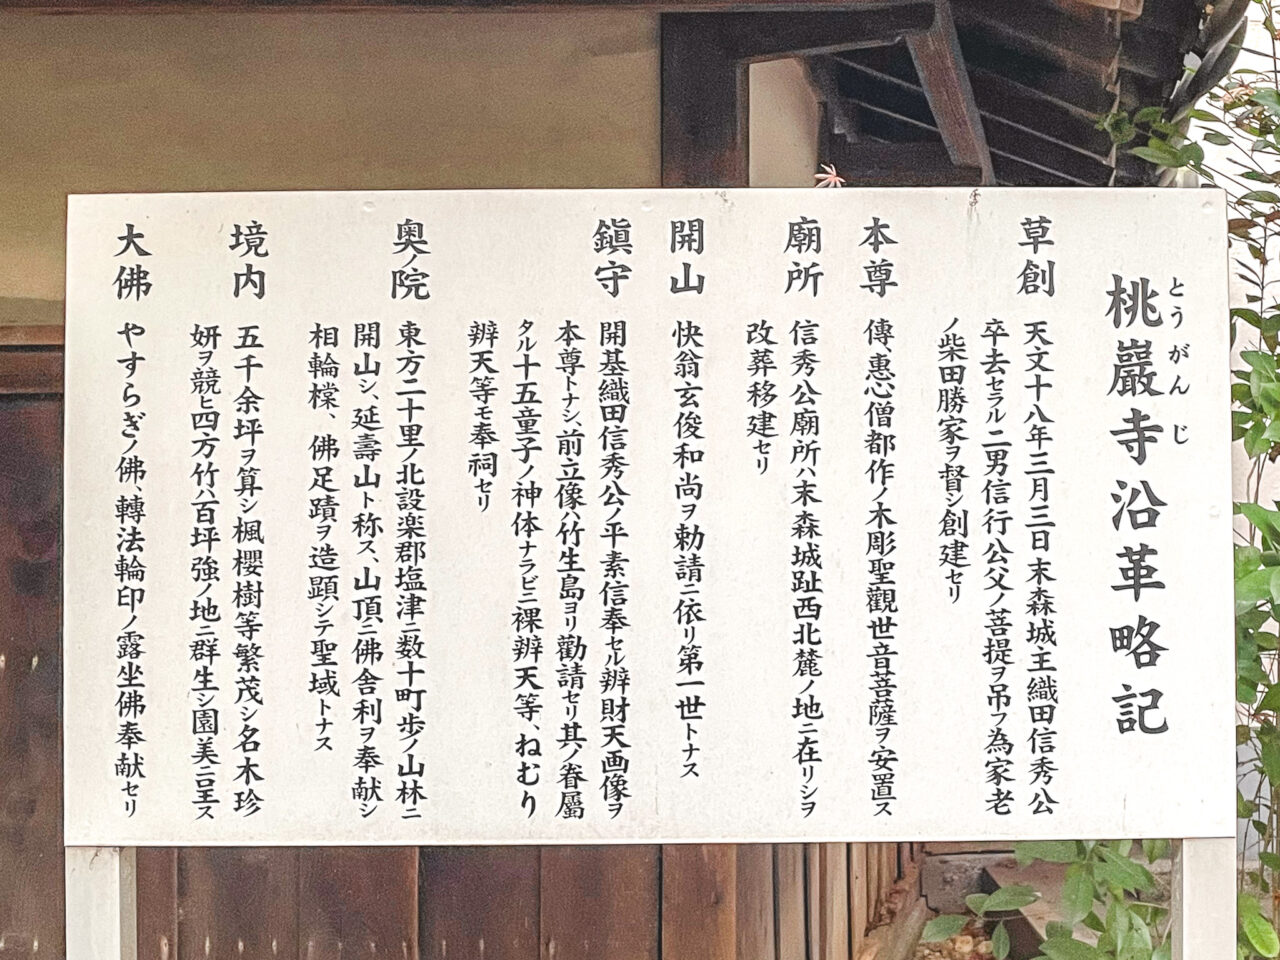 桃巖寺沿革略記
とうがんじ
草創
天文十八年三月三日末森城主織田信秀公
卒去セラル二男信行公父ノ菩提ヲ吊フ為家老
ノ柴田勝家ヲ督シ創建セリ
本尊
傳惠心僧都作ノ木彫聖觀世音菩薩ヲ安置ス
廟所
信秀公廟所ハ末森城趾西北麓ノ地ニ在リシヲ
改葬移建セリ
開山
快翁玄俊和尚ヲ勅請ニ依リ第一世トナス
鎭守
開基織田信秀公ノ平素信奉セル辨財天画像ヲ
本尊トナシ、前立像ハ竹生島ヨリ勸請セリ其ノ眷屬
タル十五童子ノ神体ナラビニ裸辨天等、ねむり
辨天等モ奉祠セリ
奥ノ院
東方二十里ノ北設楽郡塩津ニ数十町歩ノ山林ニ
開山シ、延壽山ト称ス、山頂ニ佛舎利ヲ奉献シ
相輪樘、佛足蹟ヲ造顕シテ聖域トナス
境内
五千余坪ヲ算シ楓櫻樹等繁茂シ名木珍
妍ヲ競ヒ四方竹ハ百坪強ノ地ニ群生シ園美ニ呈ス
大佛
やすらぎノ佛、轉法輪印ノ露坐佛奉献セリ